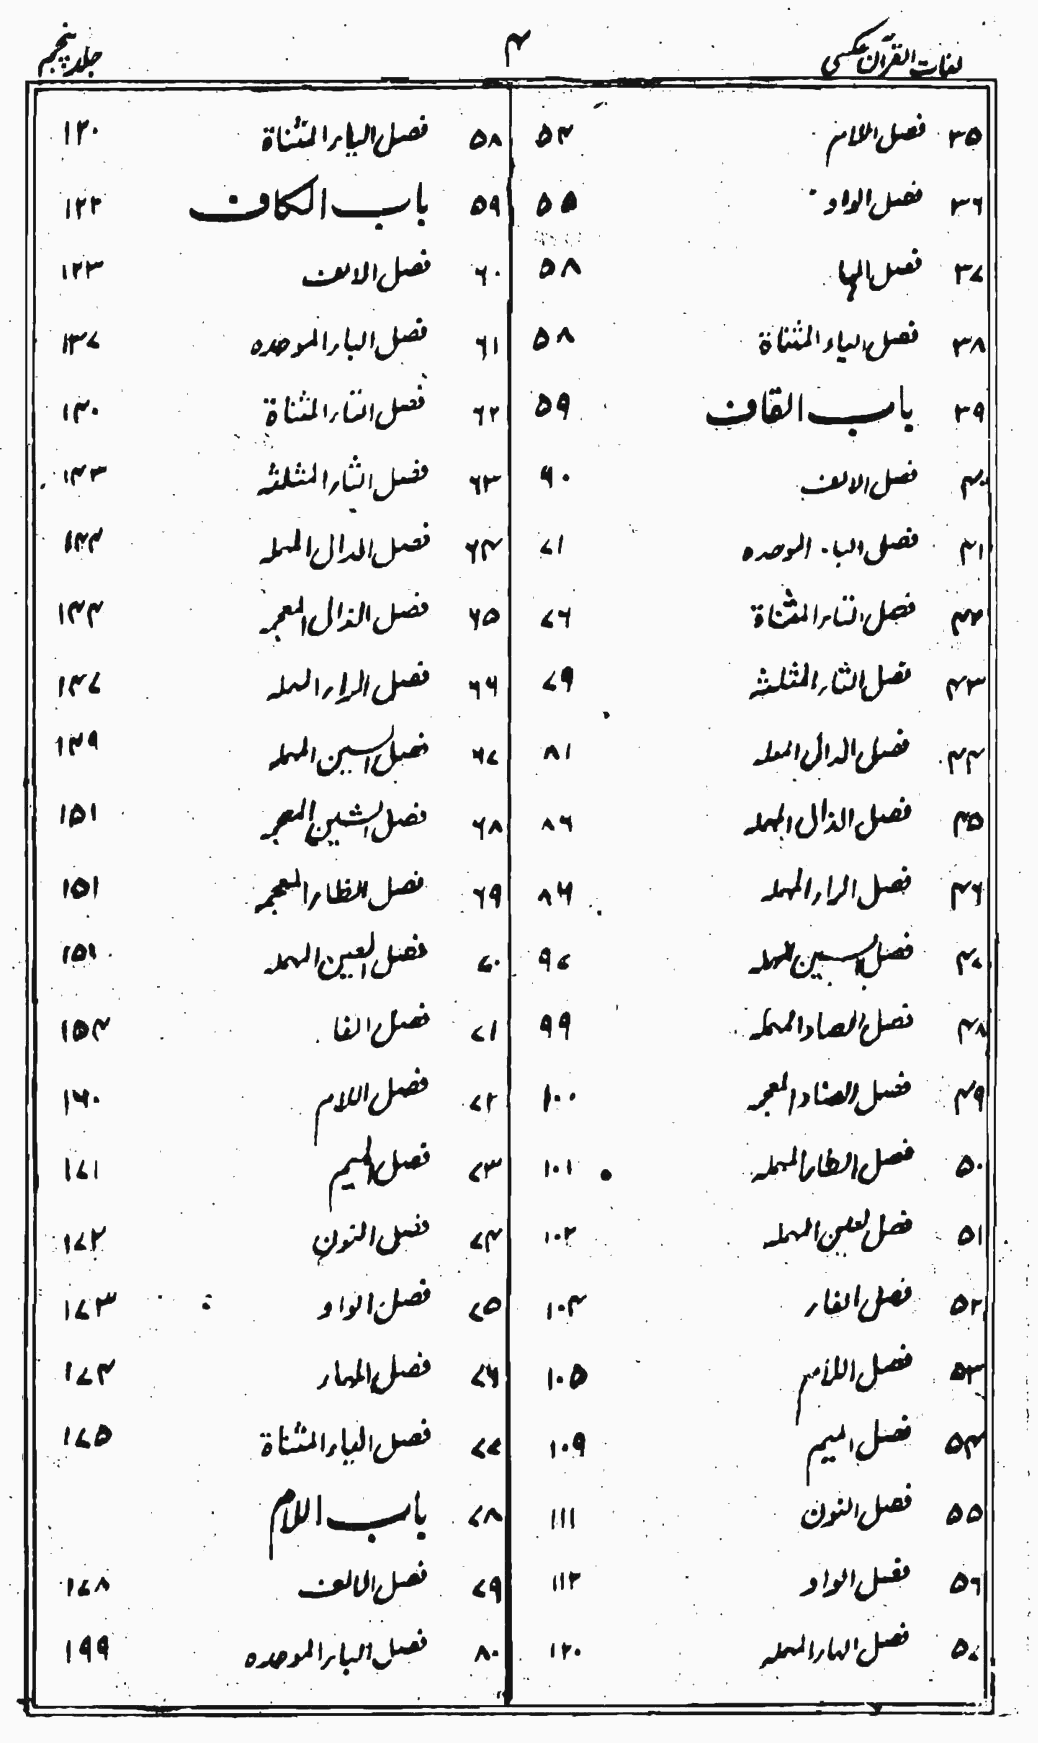 لغات القرآن عکسی ۴ جلد پنجم
۳۵ فصل اللام ۵۴
۳۶ فصل الواو ۵۵
۳۷ فصل الہا ۵۸
۳۸ فصل الیاء المثناۃ ۵۸
۳۹ باب القاف ۵۹
۴۰ فصل الالف ۶۰
۴۱ فصل الباء الموحدہ ۷۱
۴۲ فصل التاء المثناۃ ۷۶
۴۳ فصل الثاء المثلثہ ۷۹
۴۴ فصل الدال المہملہ ۸۱
۴۵ فصل الذال المہملہ ۸۶
۴۶ فصل الراء المہملہ ۸۶
۴۷ فصل السین المہملہ ۹۷
۴۸ فصل الصاد المہملہ ۹۹
۴۹ فصل الضاد المعجمہ ۱۰۰
۵۰ فصل الطاء المہملہ ۱۰۱
۵۱ فصل العین المہملہ ۱۰۲
۵۲ فصل الفاء ۱۰۴
۵۳ فصل اللام ۱۰۵
۵۴ فصل المیم ۱۰۹
۵۵ فصل النون ۱۱۱
۵۶ فصل الواو ۱۱۲
۵۷ فصل الہاء المہملہ ۱۲۰
۵۸ فصل الیاء المثناۃ ۱۲۰
۵۹ باب الکاف ۱۲۲
۶۰ فصل الالف ۱۲۳
۶۱ فصل الباء الموحدہ ۱۳۷
۶۲ فصل التاء المثناۃ ۱۴۰
۶۳ فصل الثاء المثلثہ ۱۴۳
۶۴ فصل الدال المہملہ ۱۴۴
۶۵ فصل الذال المعجمہ ۱۴۴
۶۶ فصل الراء المہملہ ۱۴۷
۶۷ فصل السین المہملہ ۱۴۹
۶۸ فصل الشین المعجمہ ۱۵۱
۶۹ فصل الظاء المعجمہ ۱۵۱
۷۰ فصل العین المہملہ ۱۵۱
۷۱ فصل الفا ۱۵۴
۷۲ فصل اللام ۱۶۰
۷۳ فصل المیم ۱۷۱
۷۴ فصل النون ۱۷۲
۷۵ فصل الواو ۱۷۳
۷۶ فصل الہاء ۱۷۴
۷۷ فصل الیاء المثناۃ ۱۷۵
۷۸ باب اللام
۷۹ فصل الالف ۱۷۸
۸۰ فصل الباء الموحدہ ۱۹۹